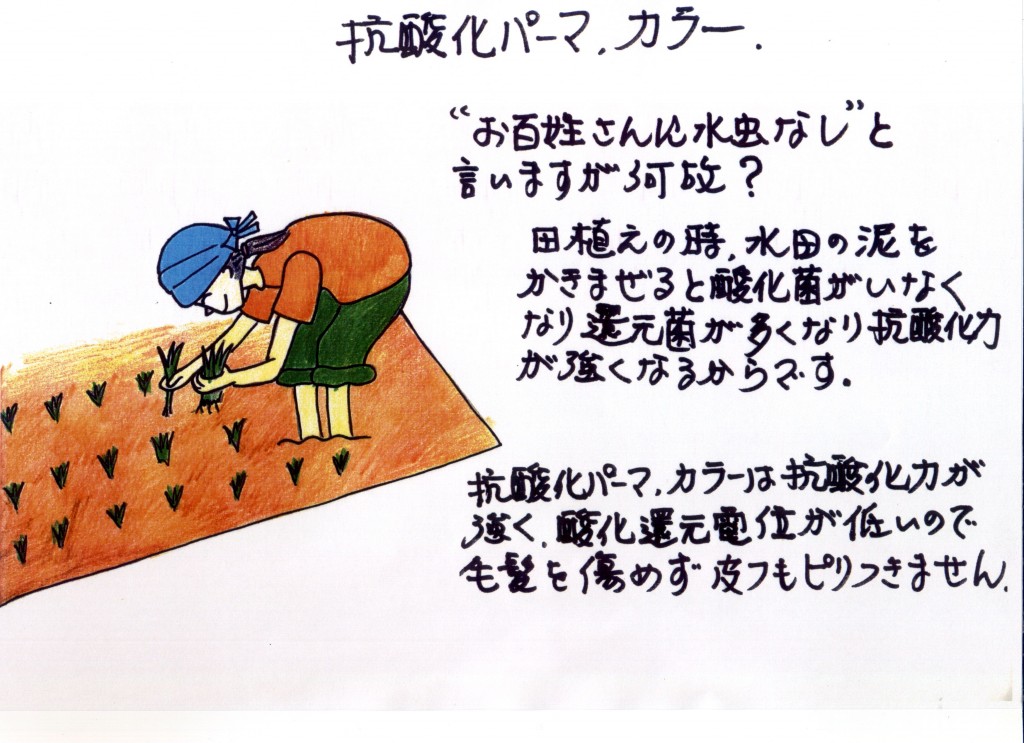 抗酸化パーマ、カラー.
“お百姓さんに水虫なし”と
言いますが何故?
田植えの時、水田の泥を
かきまぜると酸化菌がいなく
なり還元菌が多くなり抗酸化力
が強くなるからです.
抗酸化パーマ、カラーは抗酸化力が
強く、酸化還元電位が低いので
毛髪を傷めず皮フもピリつきません.